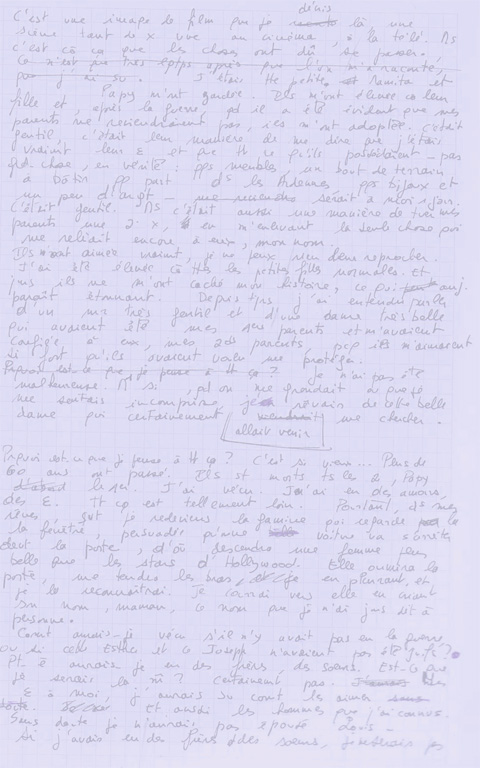 C'est une image de film que je revois là une
scène tant de x vue au cinéma, à la télé. Ms
c'est cô ça que les choses ont dû se passer,
Ce n'est que très lgtps après que l'on m'a raconté,
que j'ai su. J'étais tte petite, et Mamita et
Papy m'ont gardée. Ils m'ont élevée co leur
fille et, après la guerre, qd il a été évident que mes
parents ne reviendraient pas, ils m'ont adoptée. C'était
gentil, c'était leur manière de me dire que j'étais
vraiment leur E et que tt ce qu'ils possédaient - pas
gd chose, en vérité: qqs meubles, un bout de terrain
à bâtir qq part ds les Ardennes, qqs bijoux et
un peu d'argt - serait à moi un jour.
C'était gentil. Ms c'était aussi une manière de tuer mes
parents une 2e x, en m'enlevant la seule chose qui
me reliait encore à eux, mon nom.
Ils m'ont aimée vraiment, je ne peux rien leur reprocher.
J'ai été élevée cô ttes les petites filles normales. Et
jms ils ne m'ont caché mon histoire, ce qui auj.
paraît étonnant. Depuis tjrs j'ai entendu parler
d'un mr très gentil et d'une dame très belle
qui avaient été mes 1ers parents et m'avaient
confiée à eux, mes 2ds parents, pcq ils m'aimaient
si fort qu'ils avaient voulu me protéger.
Pourquoi est-ce que je pense à tt ça? Je n'ai pas été
malheureuse. Et si, qd on me grondait ou que je
me sentais incomprise, je rêvais de cette belle
dame qui certainement viendrait me chercher.
allait venir
Pourquoi est-ce que je pense à tt ça? C'est si vieux... Plus de
60 ans ont passé. Ils st morts ts les 2, Papy
d'abord. J'ai vécu. J'ai eu des amours,
des E. Tt ça est tellement loin. Pourtant, ds mes
rêves, je redeviens la gamine qui regarde par la
la fenêtre, persuadée qu'une voiture va s'arrêter
devant la porte, d'où descendra une femme plus
belle que les stars d'Hollywood. Elle ouvrira la
porte, me tendra les bras, en pleurant, et
je la reconnaîtrai. Je courrai vers elle en criant
son nom, maman, ce nom que je n'ai jms dit à
personne.
Comt aurais-je vécu s'il n'y avait pas eu la guerre
ou si Esther et Joseph n'avaient pas été juifs?
Pt-ê aurais-je eu des frères des soeurs. Est-ce que
je serais la m̂? Certainement pas. Les
E à moi, j'aurais su comt les aimer
Et aussi les hommes que j'ai connus.
Sans doute je n'aurais pas épousé
si j'avais eu des frères des soeurs, je